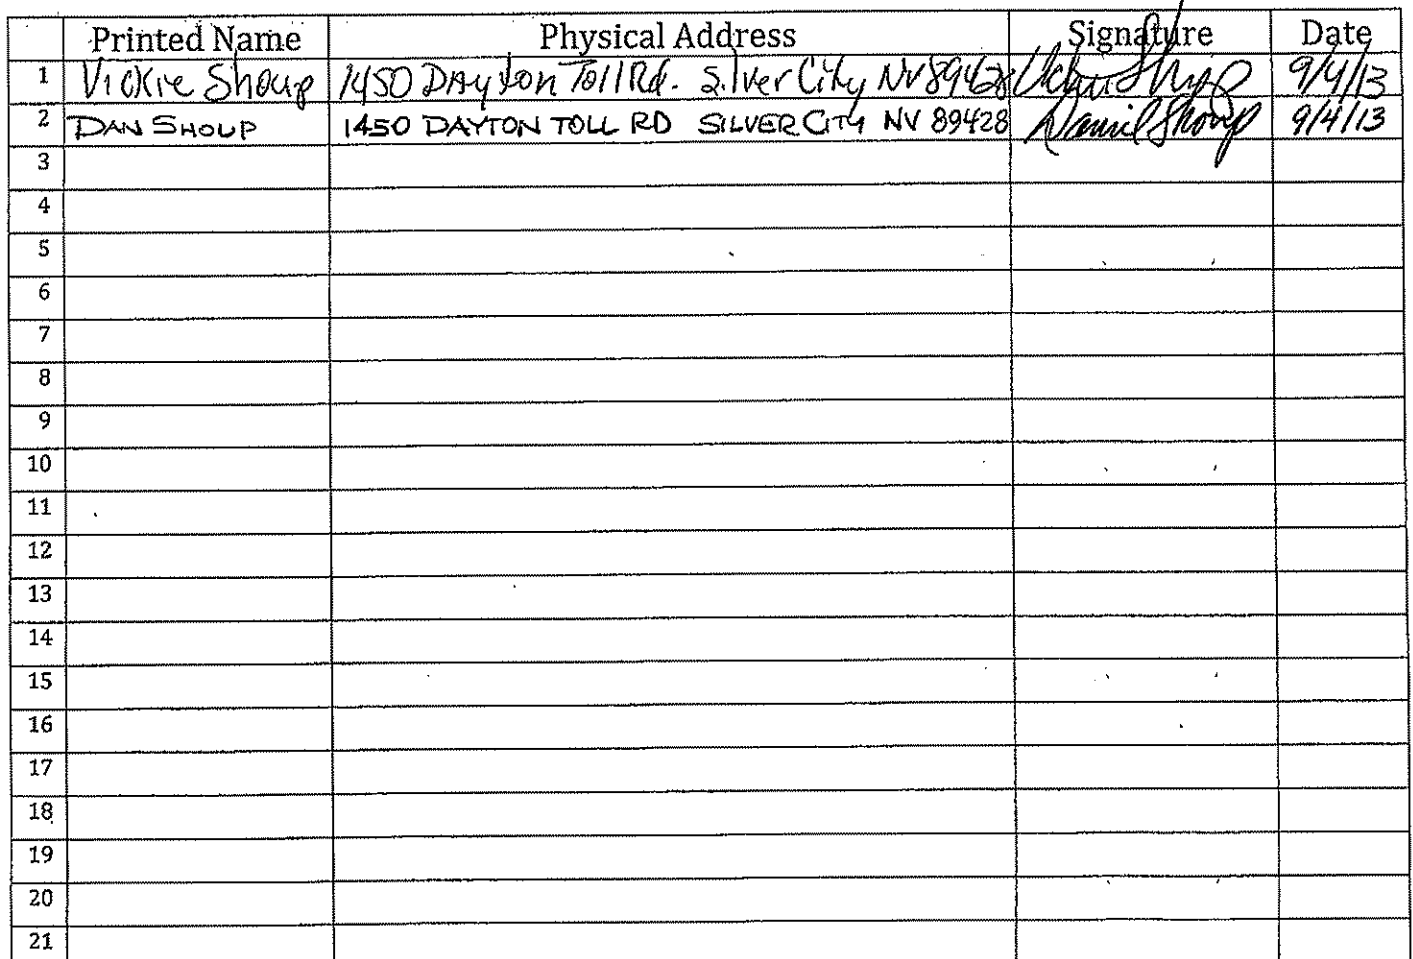 Printed Name Physical Address Signature Date
1 Vickie Shoup 1450 Dayton Toll Rd. Silver City NV 89428 Vickie Shoup 9/4/13
2 DAN SHOUP 1450 DAYTON TOLL RD SILVER CITY NV 89428 Daniel Shoup 9/4/13
3
4
5
6
7
8
9
10
11
12
13
14
15
16
17
18
19
20
21